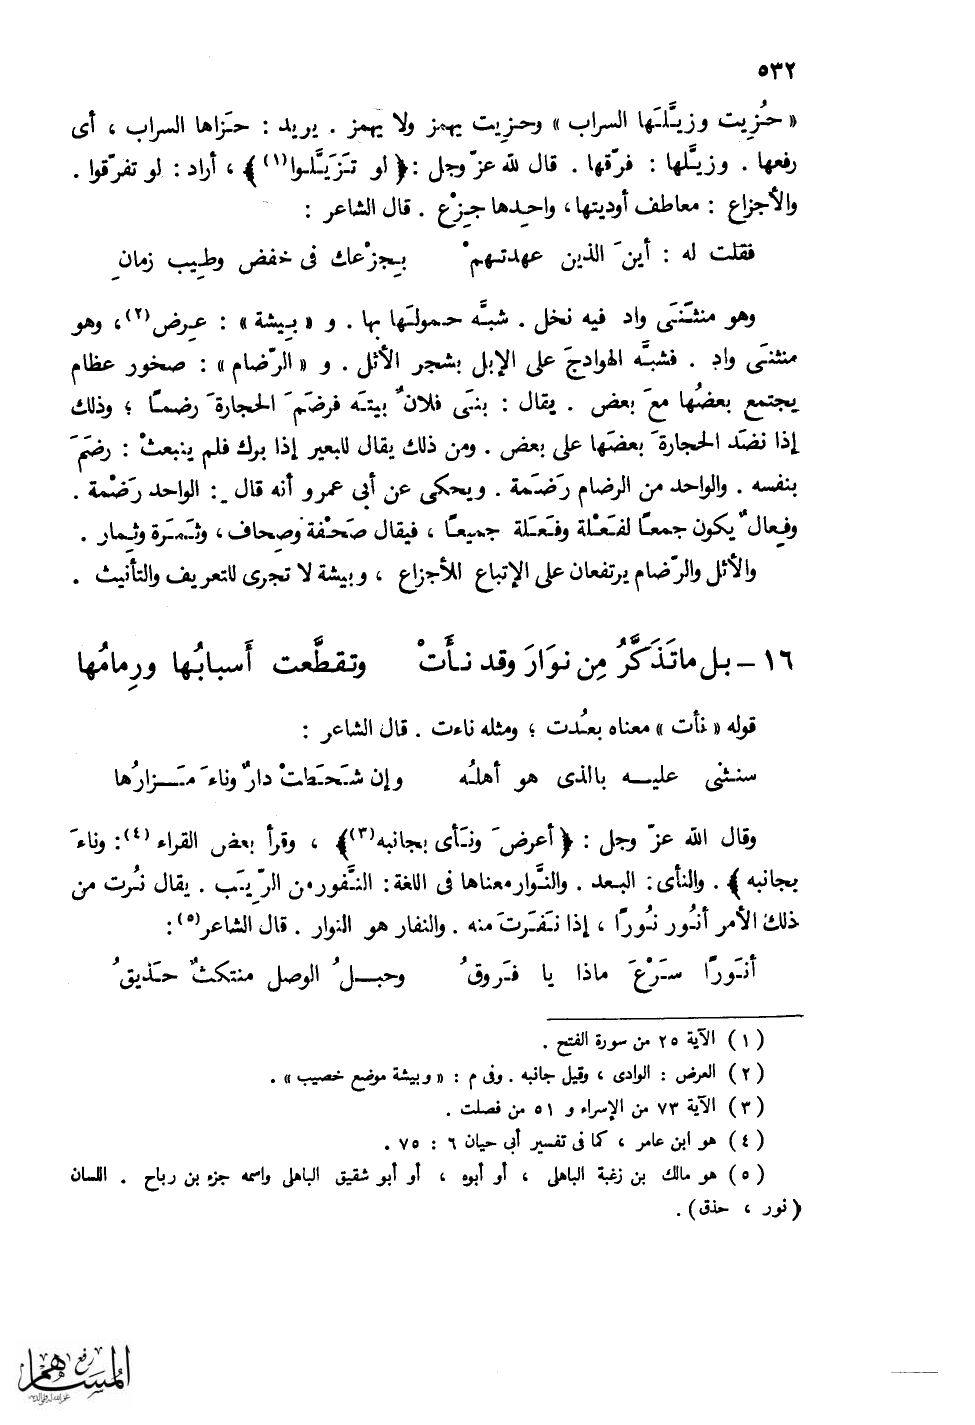 ٥٣٢
« حُزِيت وزيَّلَتها السراب » وحزِيت يهمز ولا يهمز . يريد : حَزاها السراب ، أى
رفعها . وزيَّلها : فرّقها . قال لله عزّ وجل : ﴿ لو تَزَيَّلوا(١) ﴾ ، أراد : لو تفرّقوا .
والأجزاع : معاطف أوديتها، واحِدها جِزْع . قال الشاعر :
فقلت له : أينَ الذين عهدتهمْ بِجزْعك فى خفض وطِيب زمانِ
وهو منثَنَى واد فيه نخل . شبَّه حمولتَها بها . و « بِيشة » : عِرض(٢)، وهو
منثنَى وادٍ . فشبَّه الهوادجَ على الإبل بشجر الأثل . و « الرّضام » : صخور عظام
يجتمع بعضُها معَ بعض . يقال : بنَى فلانٌ بيتَه فرضَمَ الحجارةَ رضمًا ؛ وذلك
إذا نضَد الحجارةَ بعضَها على بعض . ومن ذلك يقال للبعير إذا برك فلم ينبعثْ : رضَمَ
بنفسه . والواحد من الرضام رَضَمة . ويحكى عن أبى عمرو أنه قال : الواحد رَضْمة .
وفِعالٌ يكون جمعًا لفَعْلة وفَعَلة جميعًا ، فيقال صَحْفة وصِحاف ، وثَمَرة وثِمار .
والأثل والرّضام يرتفعان على الإتباع للأجزاع ، وبيشة لا تجرى للتعريف والتأنيث .
١٦ – بل ماتَذَكَّرُ مِن نوَارَ وقد نأَتْ وتقطَّعت أَسبابُها ورِمامُها
قوله « نأت » معناه بعُدت ؛ ومثله ناءت . قال الشاعر :
سنثنى عليه بالذى هو أهلُه وإن شَحَطَتْ دارٌ وناءَ مَزارُها
وقال الله عزّ وجل : ﴿ أعرضَ ونَأى بجانبه(٣)﴾ ، وقرأ بعض القراء (٤): وناءَ
بجانبه ﴾ . والنأى : البعد . والنَّوار معناها فى اللغة : النَّفور من الرِّيَب . يقال نُرت من
ذلك الأمر أنُور نُورًا ، إذا نَفَرتَ منه . والنفار هو النوار . قال الشاعر(٥) :
أنَورًا سَرْعَ ماذا يا فَروقُ وحبلُ الوصل منتكثٌ حَذيقُ
(١) الآية ٢٥ من سورة الفتح .
(٢) العرض : الوادى ، وقيل جانبه . وفى م : « وبيشة موضع خصيب » .
(٣) الآية ٧٣ من الإسراء و ٥١ من فصلت .
(٤) هو ابن عامر ، كما فى تفسير أبى حيان ٦ : ٧٥ .
(٥) هو مالك بن زغبة الباهلى ، أو أبوه ، أو أبو شقيق الباهلى واسمه جزء بن رباح . اللسان
( نور ، حذق ) .
رفع